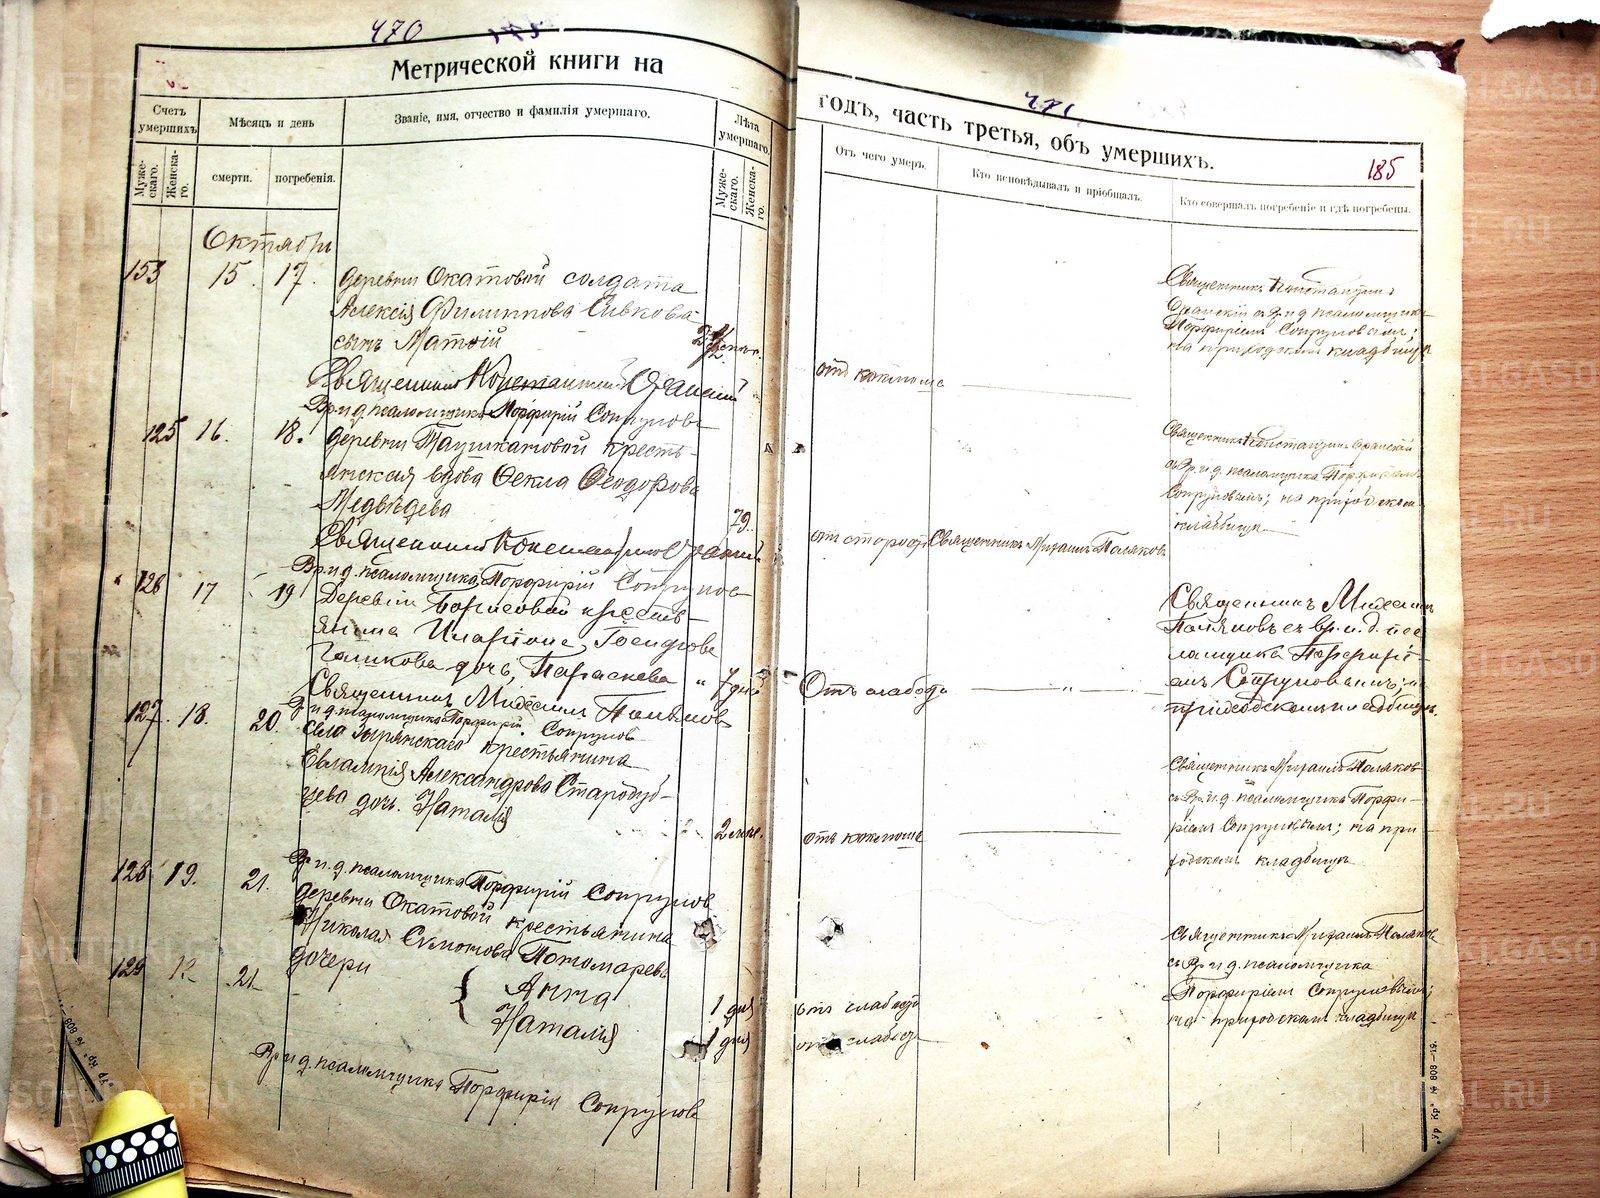 470
Метрической книги на
Счетъ умершихъ
Мѣсяцъ и день
Званіе, имя, отчество и фамилія умершаго.
Лѣта умершаго.
Муже-скаго.
Женска-го.
смерти.
погребенія.
Муже-скаго.
Женска-го.
Октябрь
153 15. 17. деревни Окатовой солдата
Алексія Филиппова Сивкова
сынъ Матѳій
Священникъ Константинъ
Вр. и д. псаломщика Порфирій Сопруновъ
125 16. 18. деревни Таушкатовой кресть-
янская вдова Ѳекла Ѳеодорова
Медвѣдева
79.
Священникъ Константинъ
Вр. и д. псаломщика Порфирій Сопруновъ
126 17 19 Деревни Борисовой кресть-
янина
Голикова дочь, Параскева " 7 дней
Священникъ Михаилъ Поляковъ
Вр. и д. псаломщика Порфирій Сопруновъ
127. 18. 20. села Зырянскаго крестьянина
Евлампія Александрова Стародуб-
цева дочь Наталія
2 мѣс.
Вр. и д. псаломщика Порфирій Сопруновъ
128 19. 21. деревни Окатовой крестьянина
Николая Симонова Пономарева
дочери
129 21.
Анна 1 дня
Наталія 1 дня
Вр. и д. псаломщика Порфирій Сопруновъ
471
годъ, часть третья, объ умершихъ.
185
Отъ чего умеръ.
Кто исповѣдывалъ и пріобщалъ.
Кто совершалъ погребеніе и гдѣ погребены.
Священникъ Константинъ
съ Вр. и д. псаломщика
Порфиріемъ Сопруновымъ;
на приходскомъ кладбищѣ
отъ коклюша
Священникъ Константинъ
съ Вр. и д. псаломщика Порфиріемъ
Сопруновымъ; на приходском
кладбищѣ
отъ старости Священникъ Михаилъ Поляковъ
Священникъ Михаилъ
Поляковъ съ вр. и. д. пса
ломщика Порфирі-
емъ Сопруновымъ; на
приходскомъ кладбищѣ.
Отъ слабости "
Священникъ Михаилъ Поляковъ
съ Вр. и д. псаломщика Порфи-
ріемъ Сопруновымъ; на при
ходскомъ кладбищѣ
отъ коклюша
Священникъ Михаилъ Поляковъ
съ Вр. и д. псаломщика
Порфиріемъ Сопруновымъ;
на приходскомъ кладбищѣ
отъ слабости
отъ слабости
"Ур. Кр." № 808—19.